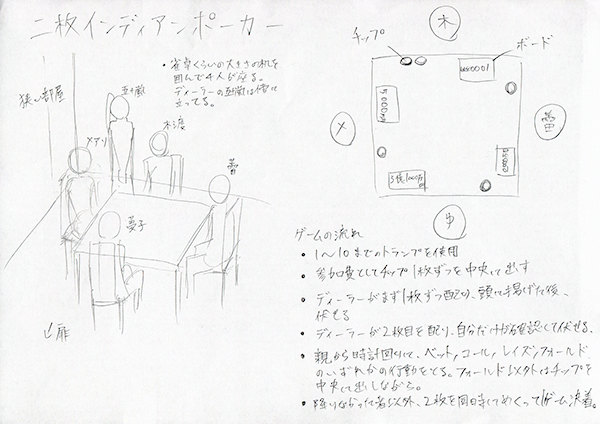 二枚インディアンポーカー
・雀卓くらいの大きさの机を
囲んで4人が座る。
ディーラーの五十嵐は傍に
立ってる。
狭い部屋
五十嵐
木渡
メアリ
夢子
扉
チップ
ボード
木
メ
ゆ
ゲームの流れ
・1～10までのトランプを使用
・参加費としてチップ1枚ずつを中央に出す
・ディーラーがまず1枚ずつ配り、頭に掲げた後、
伏せる
・ディーラーが2枚目を配り、自分だけが確認して伏せる。
・親から時計回りに、ベット、コール、レイズ、フォールド
のいずれかの行動をとる。フォールド以外はチップを
中央に出しながら。
・降りなかった者以外、2枚を同時にめくって1ゲーム決着。